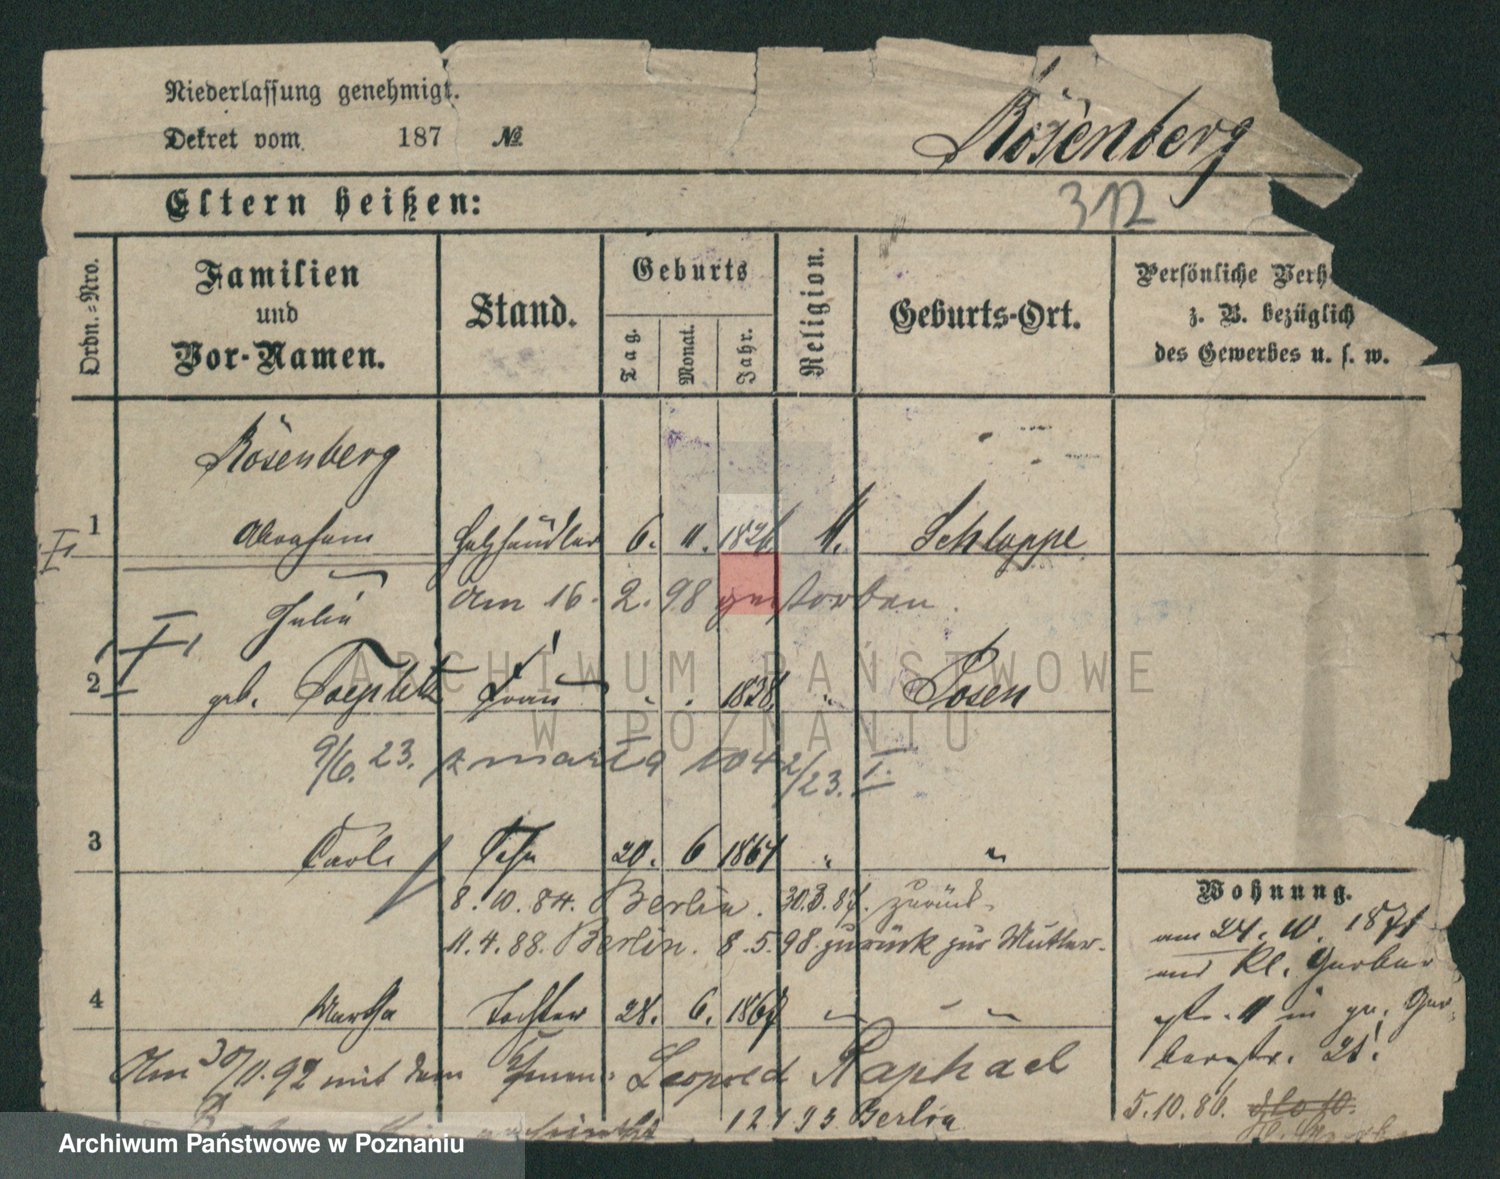 Niederlassung genehmigt.
Dekret vom 187 №
Rosenberg
312
Eltern heißen:
Ordn.-Nro.
Familien
und
Vor-Namen.
Stand.
Geburts
Tag.
Monat.
Jahr.
Religion.
Geburts-Ort.
Persönliche Verh
z. B. bezüglich
des Gewerbes u. s. w.
Rosenberg
1 Abraham Holzhändler 6. 11. 1826 M. Schloppe
am 16. 2. 98 gestorben.
Julie
2 geb. Toeplitz Frau 1838 " Posen
9/6. 23. zmarła 1042/23. I.
3 Carl Sohn 20. 6 1864 " "
8. 10. 84. Berlin. 30.3.87. zurück.
11. 4. 88. Berlin. 8. 5. 98. zurück zur Mutter.
4 Martha Tochter 28. 6. 1867 " "
Am 30/10. 92 mit dem Leopold Raphael
verheirathet 12 1 93 Berlin
Wohnung.
am 24. 10. 1871
und Kl. Gerber
str. 11 in gr. Ger
berstr. 21.
5. 10. 80.
ARCHIWUM PAŃSTWOWE
W POZNANIU
Archiwum Państwowe w Poznaniu